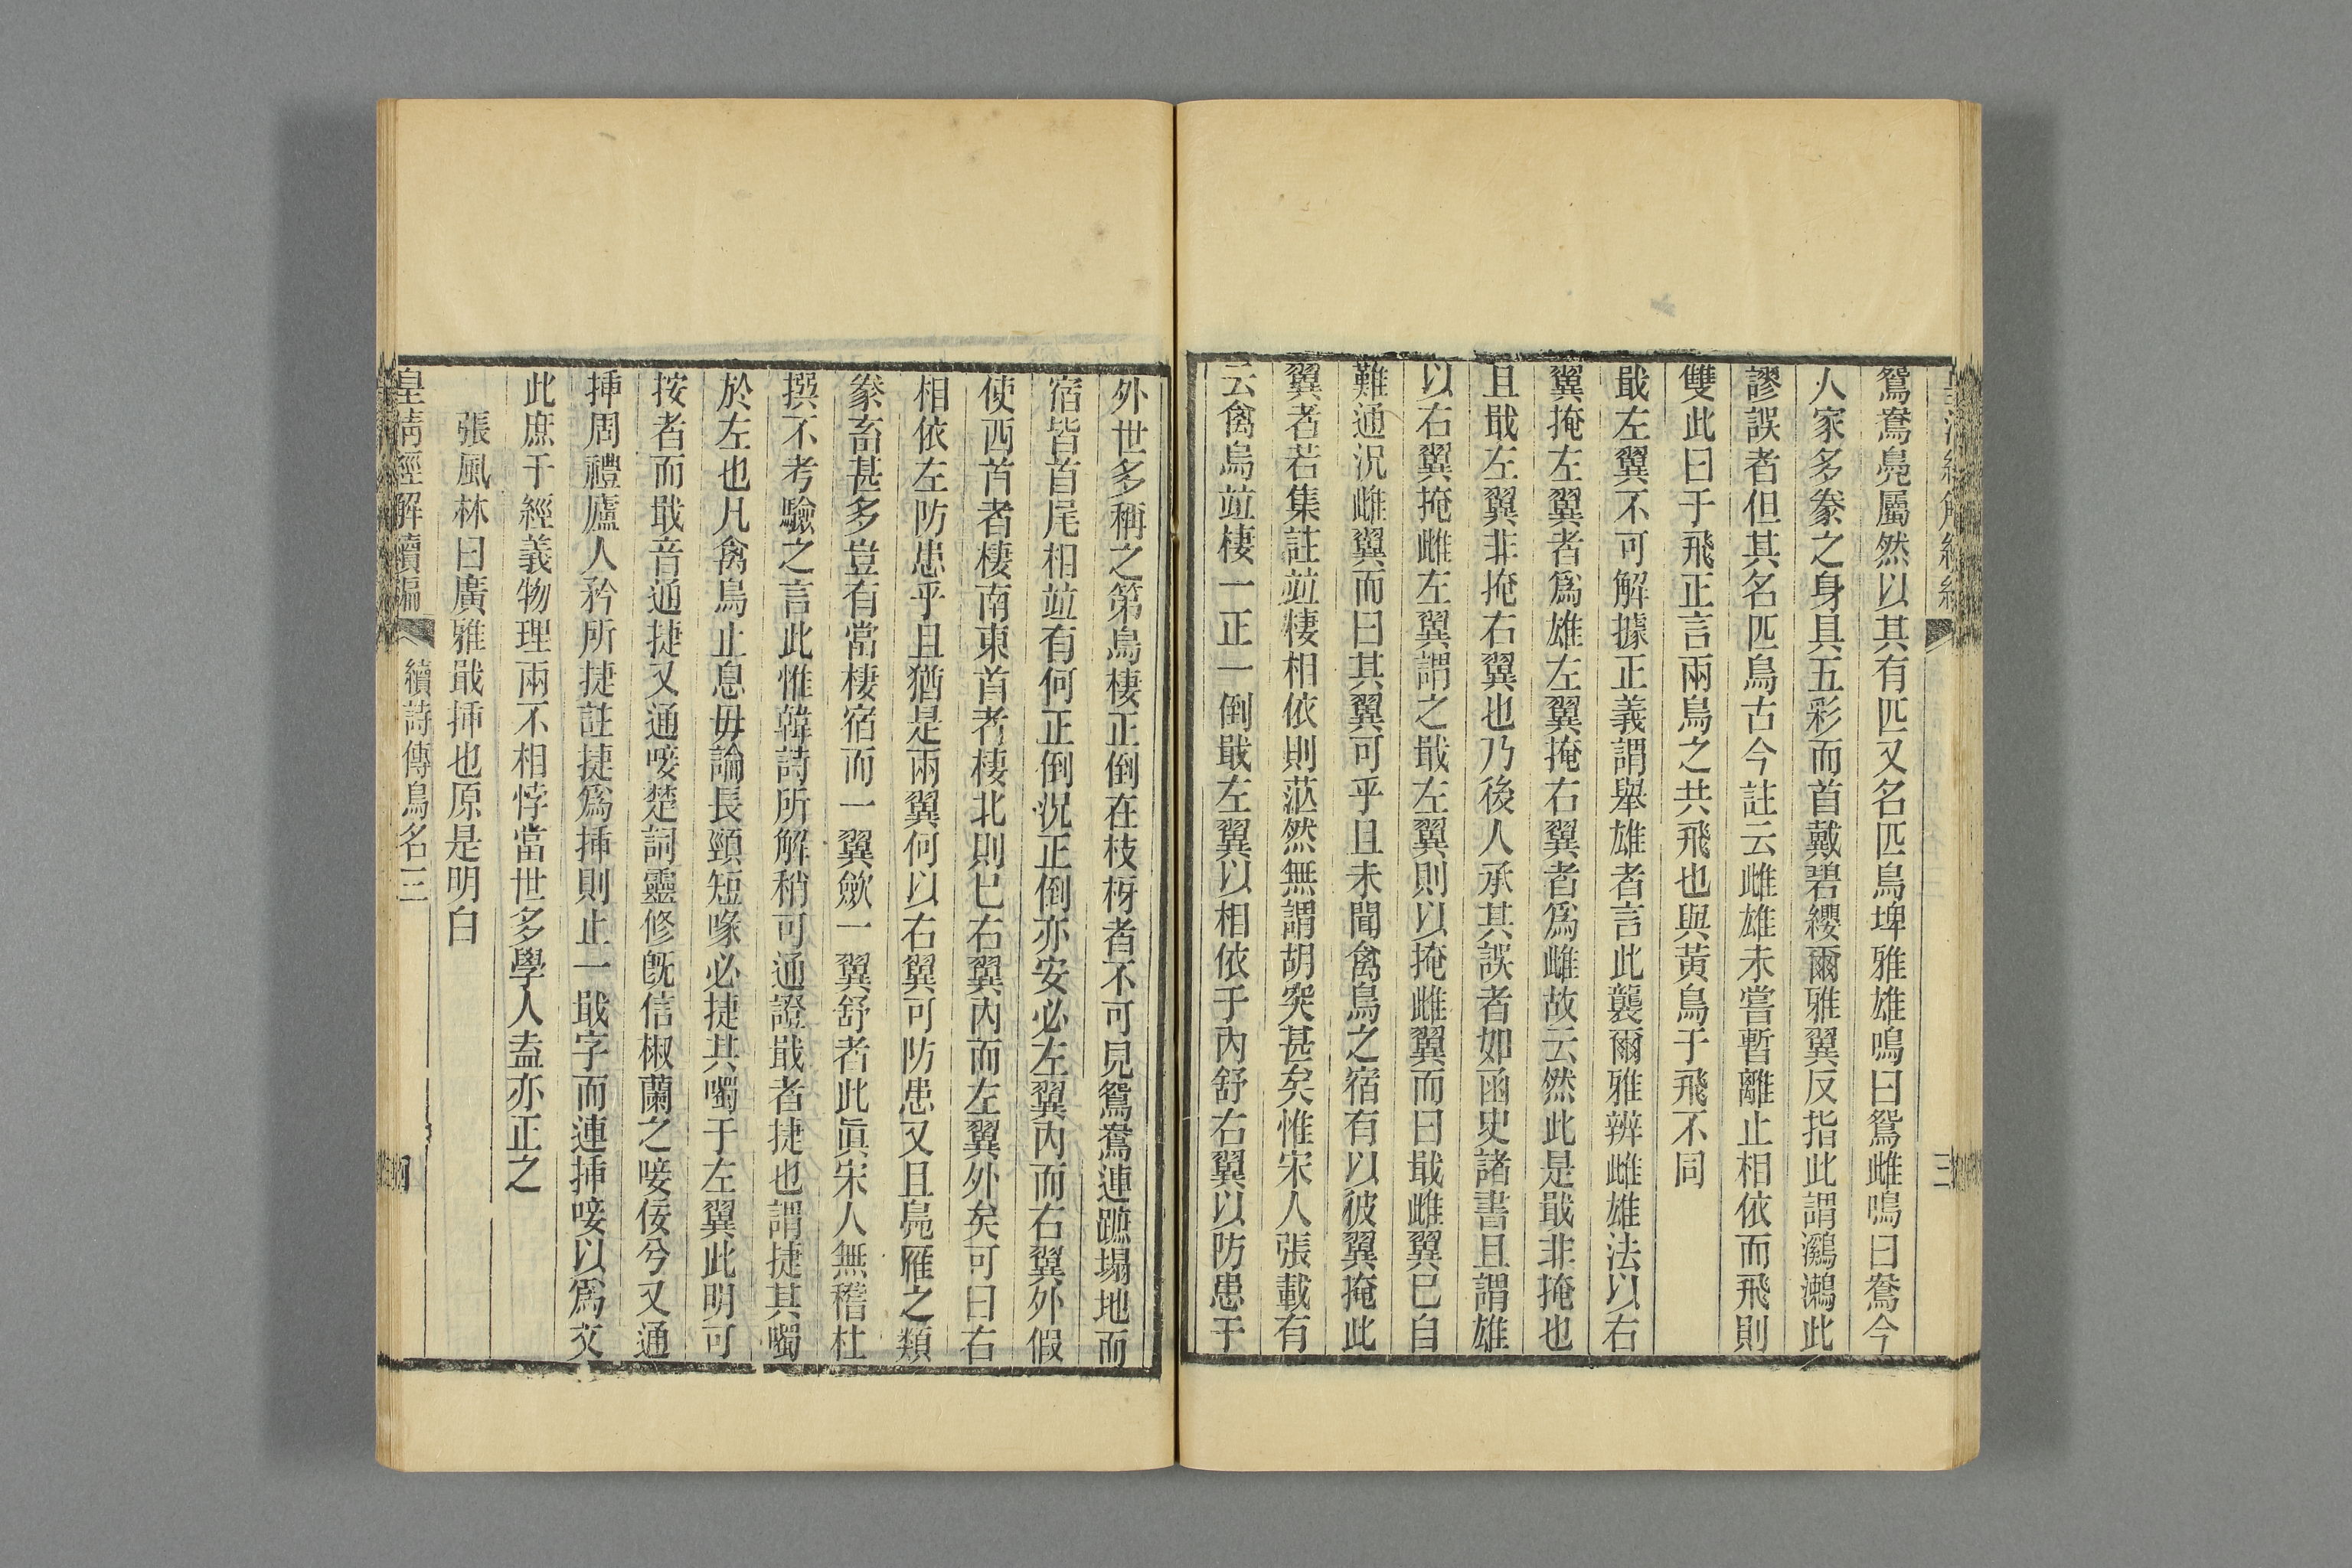 鴛鴦鳧屬然以其有匹又名匹鳥埤雅雄鳴曰鴛雌鳴曰鴦今
人家多豢之身具五彩而首戴碧纓爾雅翼反指此謂鸂鶒此
謬誤者但其名匹鳥古今註云雌雄未嘗暫離止相依而飛則
雙此曰于飛正言兩鳥之共飛也與黃鳥于飛不同
戢左翼不可解據正義謂舉雄者言此襲爾雅辨雌雄法以右
翼掩左翼者爲雄左翼掩右翼者爲雌故云然此是戢非掩也
且戢左翼非掩右翼也乃後人承其誤者如函史諸書且謂雄
以右翼掩雌左翼謂之戢左翼則以掩雌翼而曰戢雌翼巳自
難通況雌翼而曰其翼可乎且未聞禽鳥之宿有以彼翼掩此
翼者若集註竝棲相依則茫然無謂胡突甚矣惟宋人張載有
云禽鳥竝棲一正一倒戢左翼以相依于內舒右翼以防患于
外世多稱之第鳥棲正倒在枝枒者不可見鴛鴦連蹠塌地而
宿皆首尾相竝有何正倒況正倒亦安必左翼內而右翼外假
使西首者棲南東首者棲北則巳右翼內而左翼外矣可曰右
相依左防患乎且猶是兩翼何以右翼可防患又且鳧雁之類
豢畜甚多豈有當棲宿而一翼歛一翼舒者此眞宋人無稽杜
撰不考驗之言此惟韓詩所解稍可通證戢者捷也謂捷其噣
於左也凡禽鳥止息毋論長頸短喙必捷其噣于左翼此明可
按者而戢音通捷又通唼楚詞靈修旣信椒蘭之唼佞兮又通
揷周禮廬人矜所捷註捷爲揷則止一戢字而連揷唼以爲文
此庶于經義物理兩不相悖當世多學人盍亦正之
張風林曰廣雅戢揷也原是明白
皇淸經解續編
續詩傳鳥名三
三